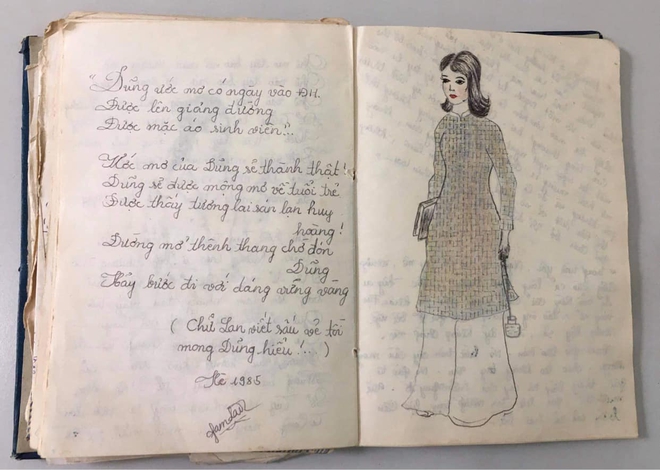 "Dũng ước mơ có ngày vào ĐH.
Được lên giảng đường
Được mặc áo sinh viên"..
Ước mơ của Dũng sẽ thành thật!
Dũng sẽ được mộng mơ về tuổi trẻ
Được thấy tương lai sán lạn huy
hoàng!
Đường mở thênh thang chờ đón
Dũng
Hãy bước đi với dáng vững vàng
( Chữ Lan viết sấu vẽ tồi
mong Dũng hiểu!... )
Hè 1985